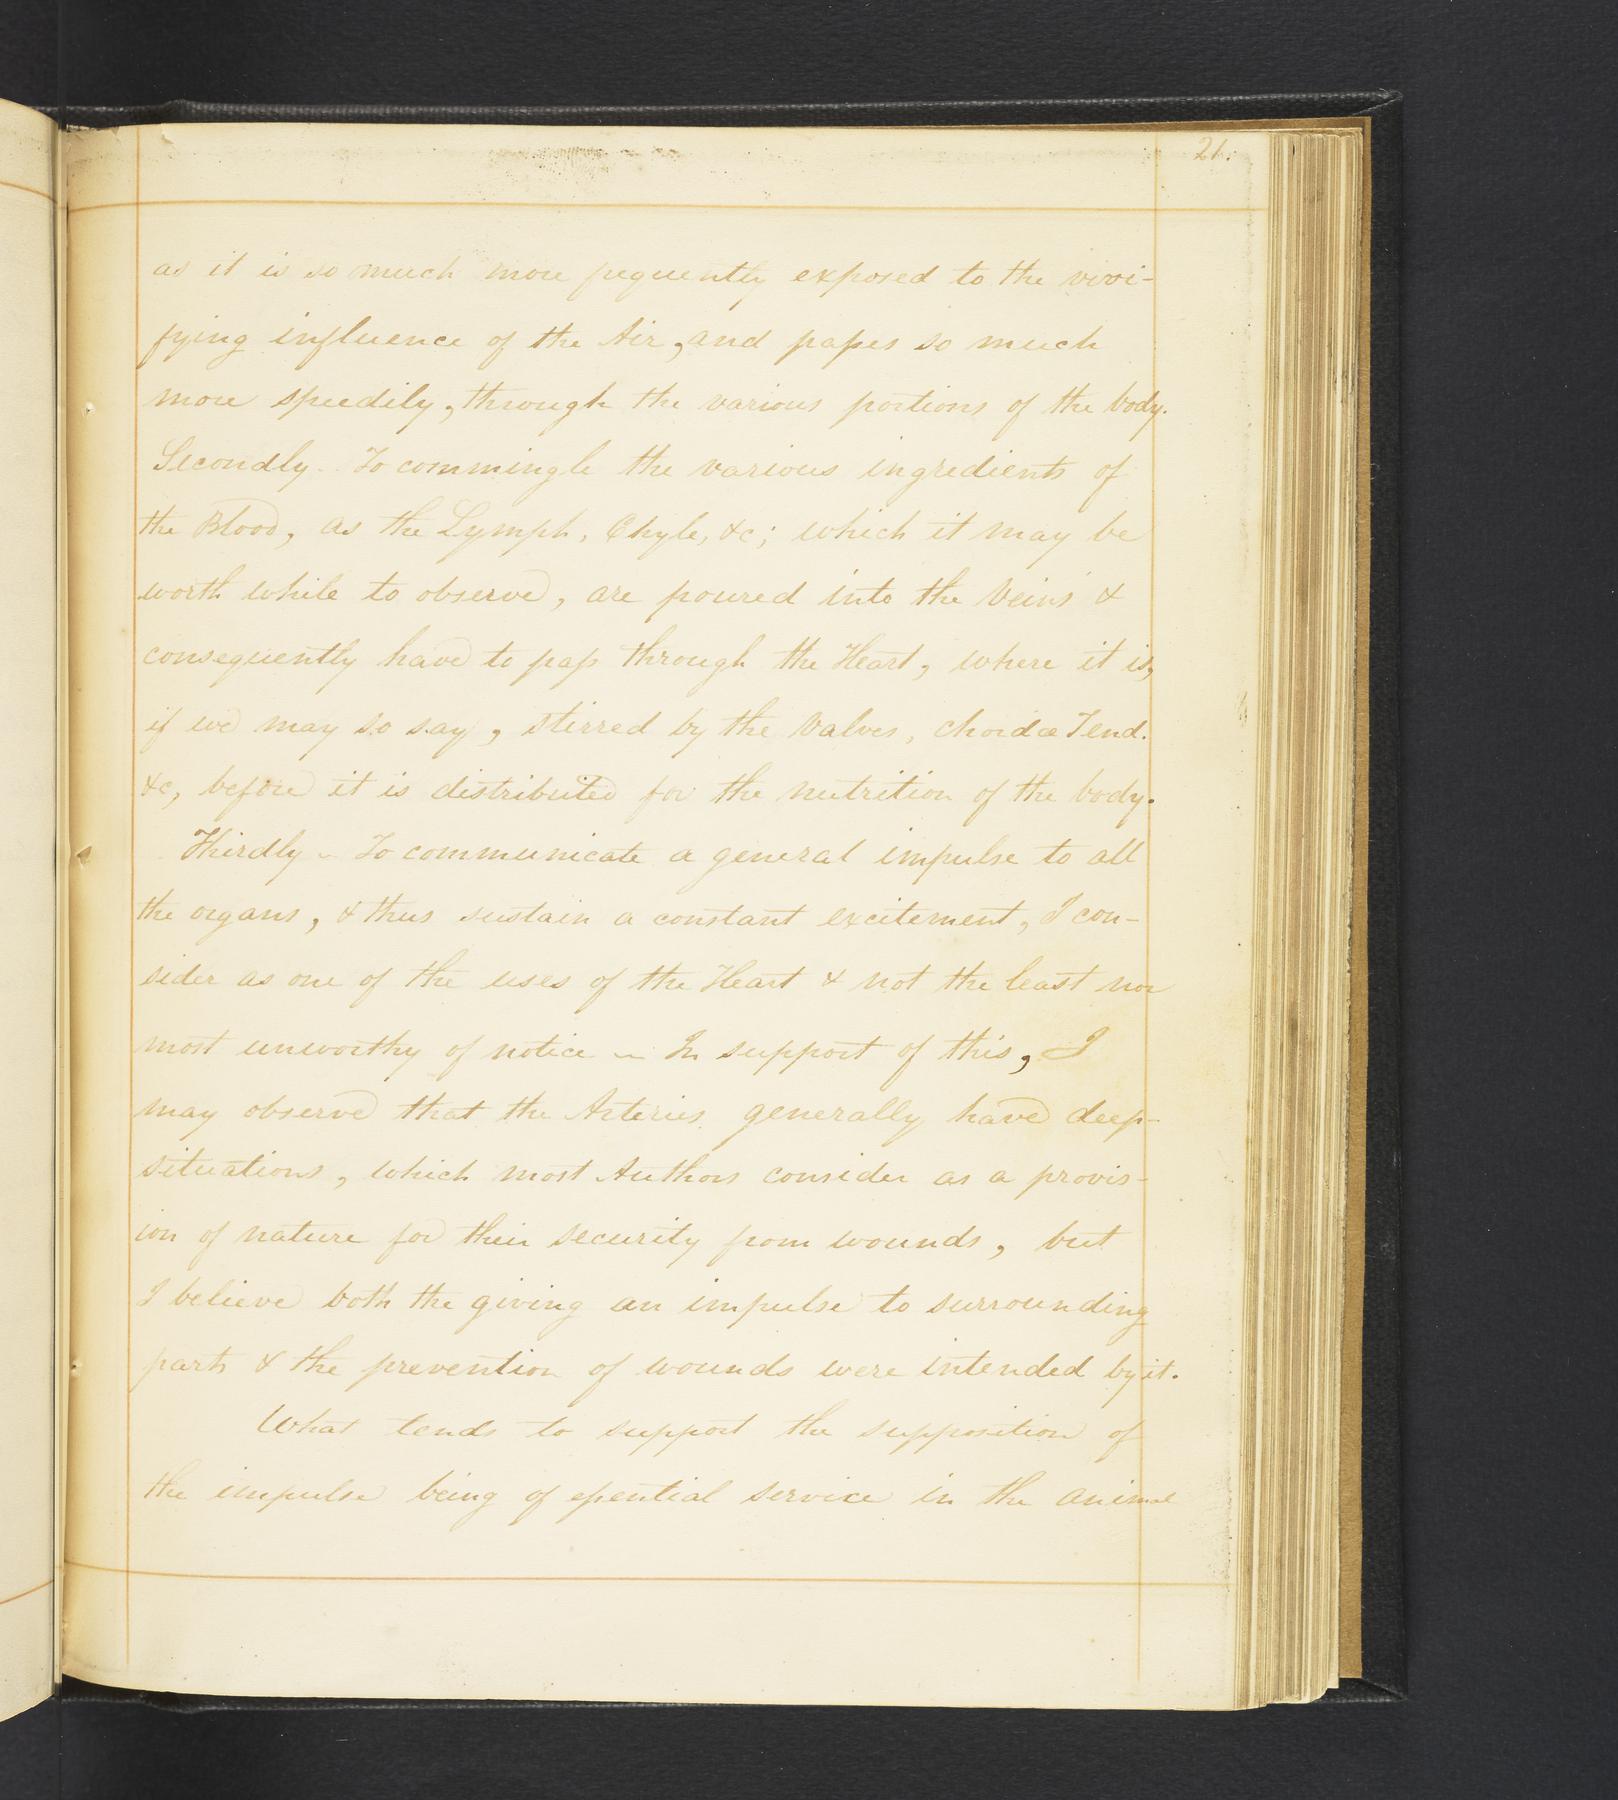 21.
as it is so much more frequently exposed to the vivi-
fying influence of the Air, and passes so much
more speedily, through the various portions of the body.
Secondly - To commingle the various ingredients of
the Blood, as the Lymph, Chyle, &c; which it may be
worth while to observe, are poured into the Veins &
consequently have to pass through the Heart, where it is,
if we may so say, stirred by the Valves, Chordæ Tend.
&c, before it is distributed for the nutrition of the body.
Thirdly - To communicate a general impulse to all
the organs, & thus sustain a constant excitement, I con-
sider as one of the uses of the Heart & not the least nor
most unworthy of notice - In support of this, I
may observe that the Arteries generally have deep-
situations, which most Authors consider as a provis-
ion of nature for their security from wounds, but
I believe both the giving an impulse to surrounding
parts & the prevention of wounds were intended by it.
What tends to support the supposition of
the impulse being of essential service in the animal